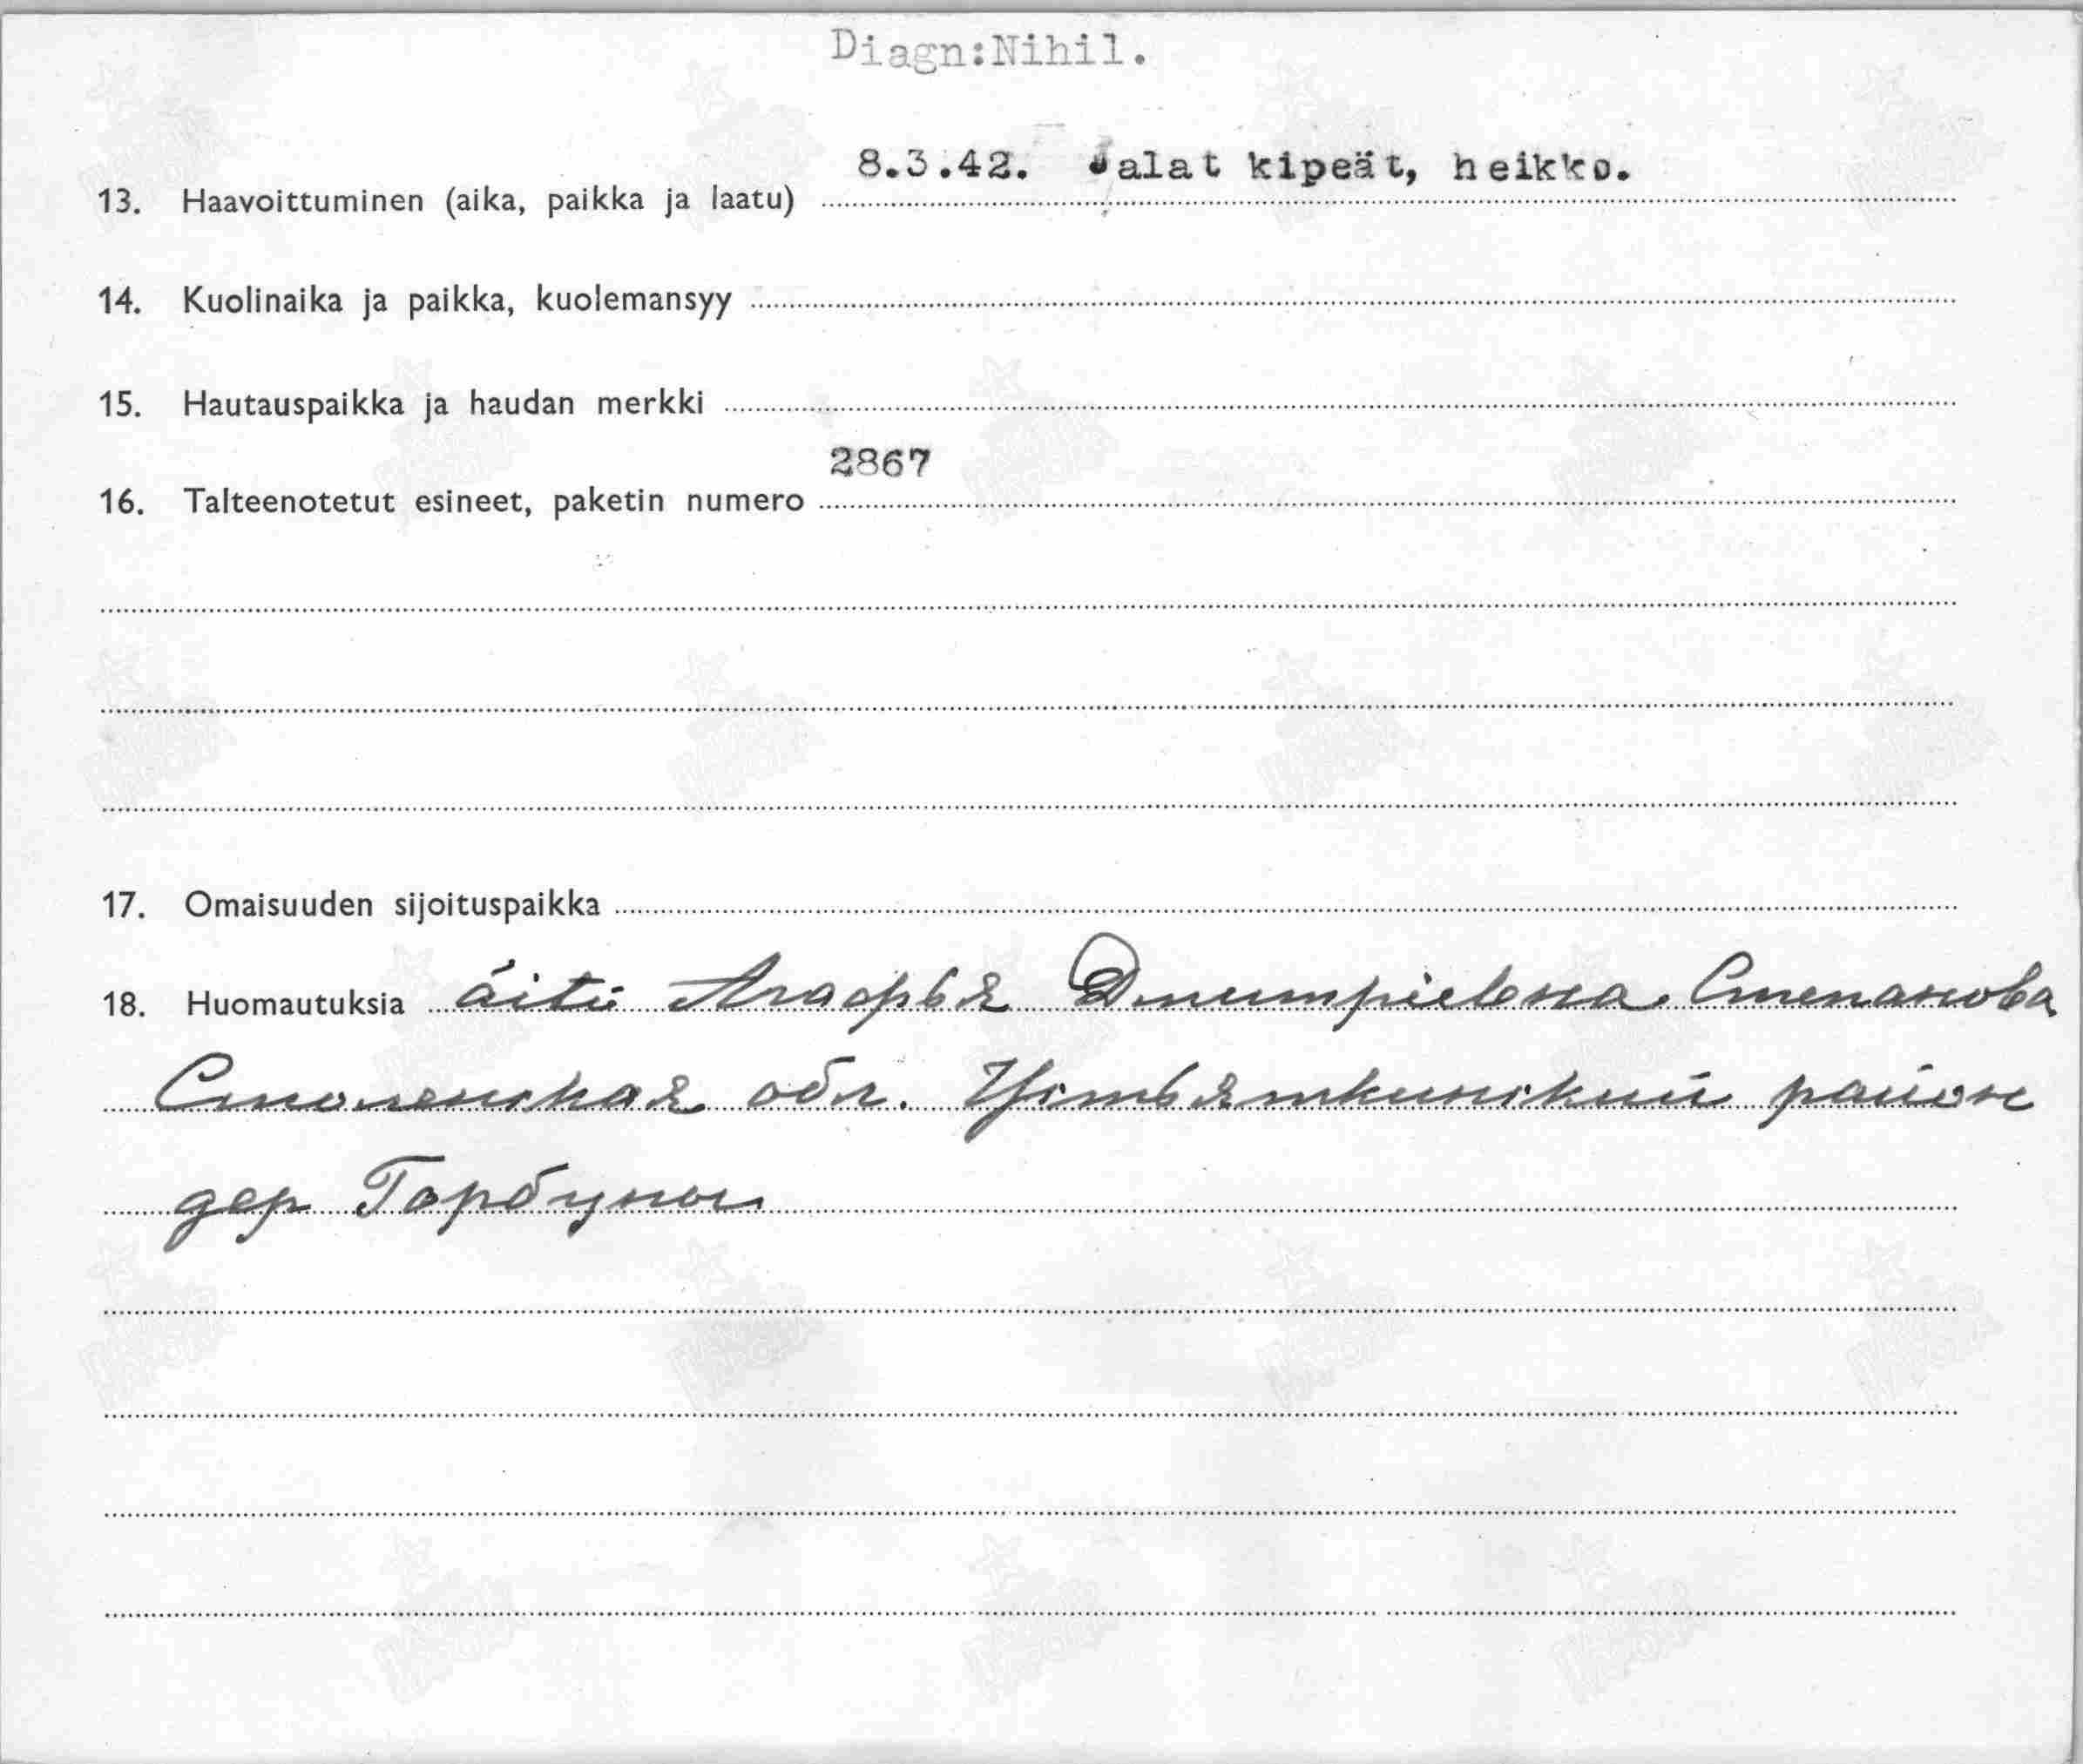 Diagn:Nihil.
8.3.42. Jalat kipeät, heikko.
13. Haavoittuminen (aika, paikka ja laatu)
14. Kuolinaika ja paikka, kuolemansyy
15. Hautauspaikka ja haudan merkki
2867
16. Talteenotetut esineet, paketin numero
17. Omaisuuden sijoituspaikka
18. Huomautuksia äiti Дмитріевна. Степанова
Смоленская обл. район
дер Горбунои